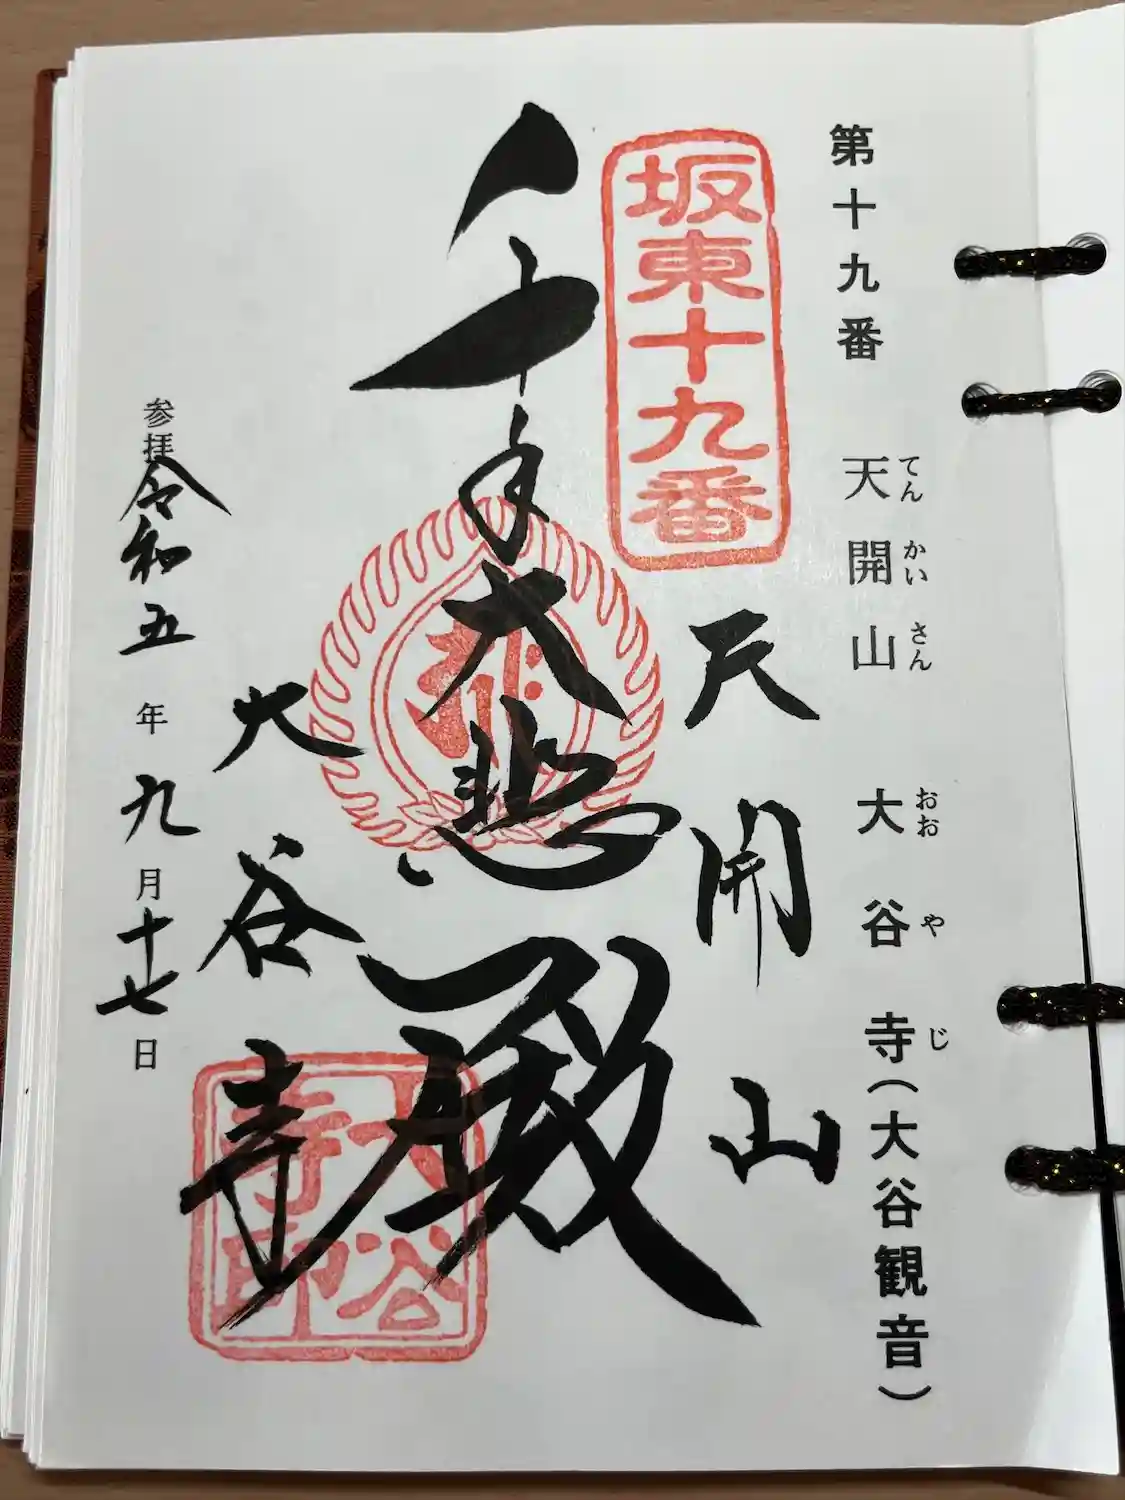 第十九番 天開山 大谷寺(大谷観音)
てんかいさん おおやじ
坂東十九番
天開山
千手大悲殿
大谷寺
大谷寺印
参拝 令和五年九月十七日